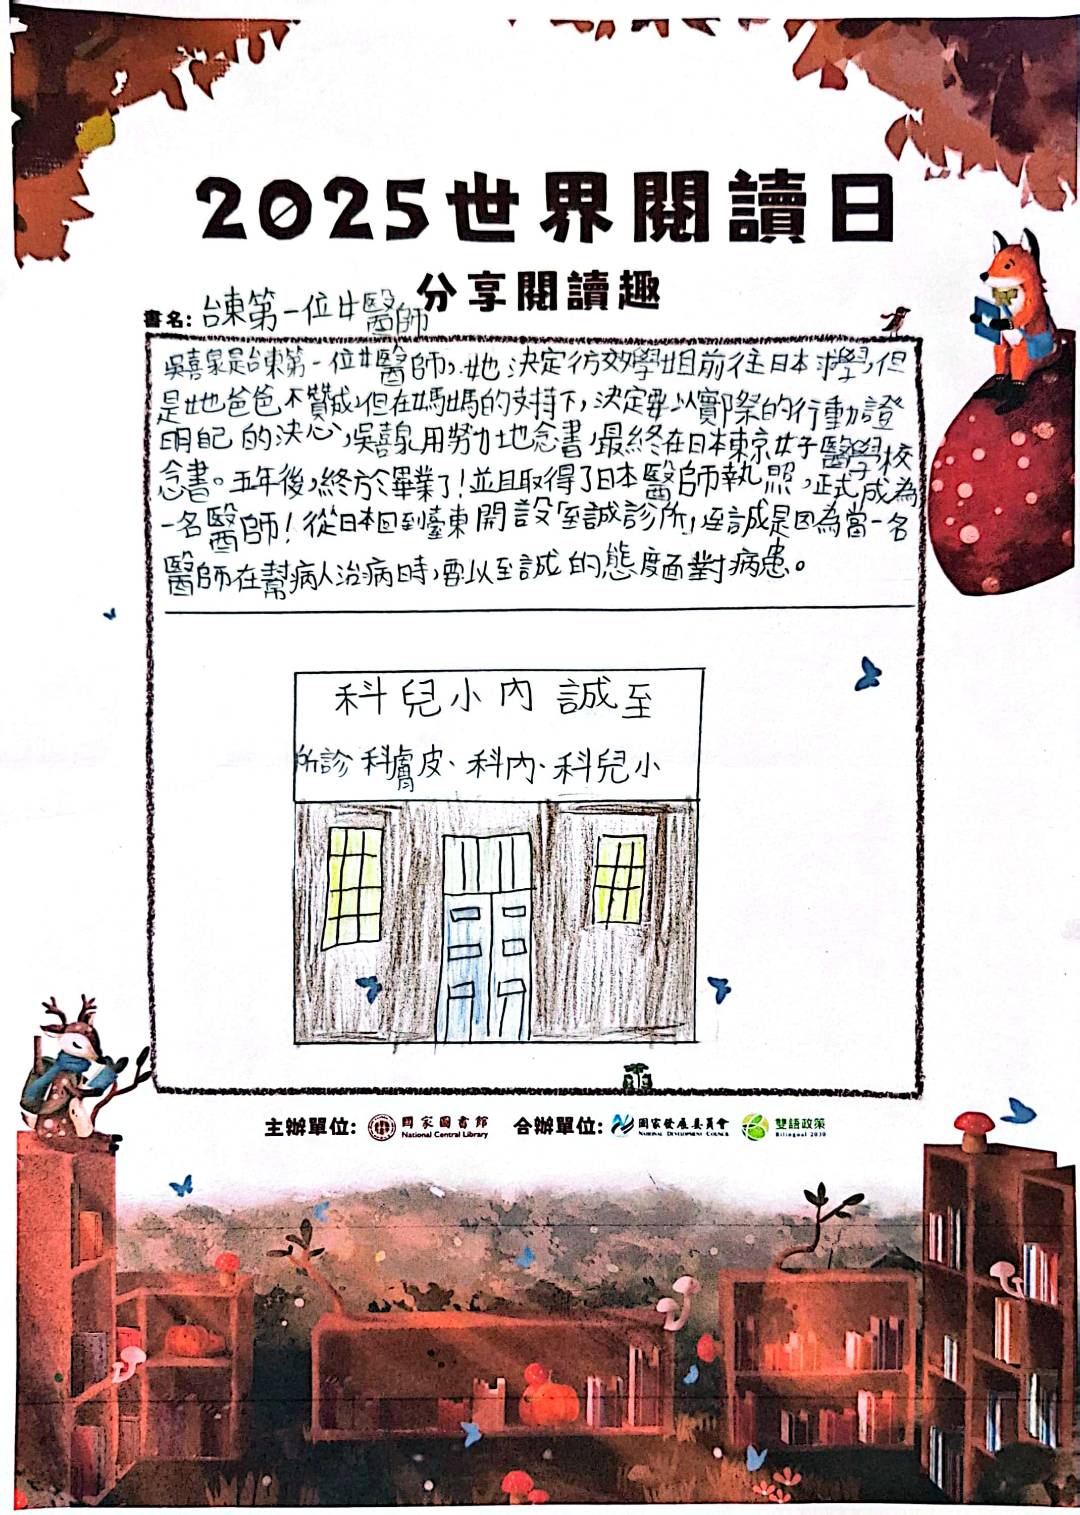 2025世界閱讀日
分享閱讀趣
書名: 台東第一位女醫師
吳喜泉是台東第一位女醫師,她決定彷效學姐前往日本求學,但
是她爸爸不贊成,但在媽媽的支持下,決定要以實際的行動證
明自己的決心,吳喜泉用努力地念書,最終在日本東京女子醫學校
念書。五年後,終於畢業了!並且取得了日本醫師執照,正式成為
一名醫師!從日本回到臺東開設至誠診所,至誠是因為當一名
醫師在幫病人治病時,要以至誠的態度面對病患。
科兒小內誠至
所診科膚皮、科內、科兒小
主辦單位: 國家圖書館 合辦單位: 國家發展委員會 雙語政策
National Central Library NATIONAL DEVELOPMENT COUNCIL Bilingual 2030